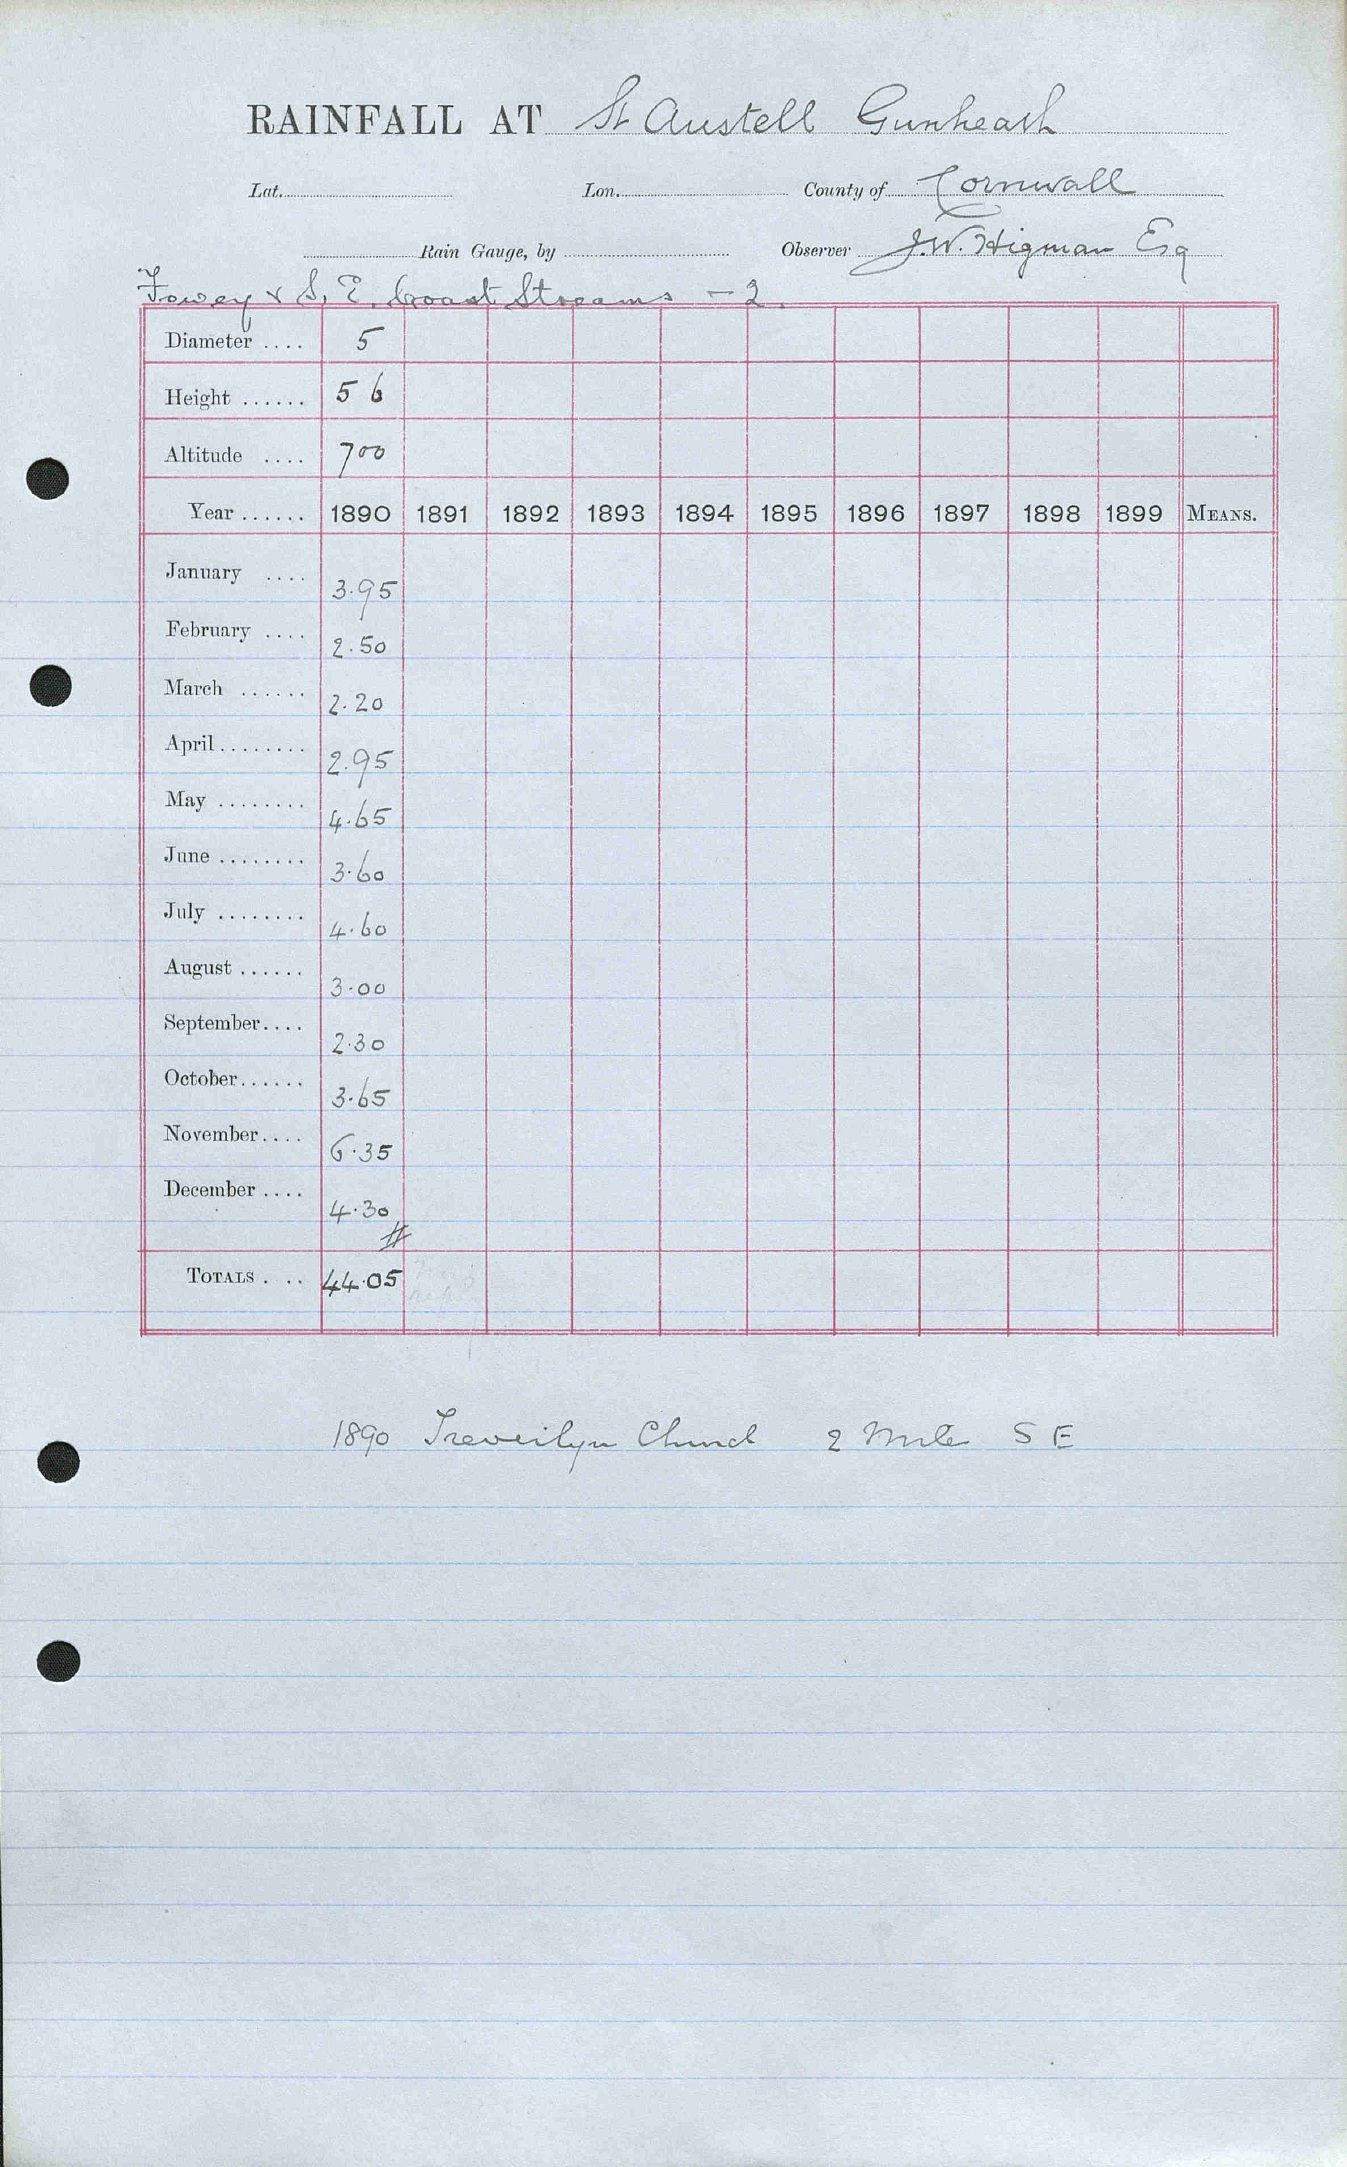 RAINFALL AT St Austell Gunheath
Lat. Lon. County of Cornwall
Rain Gauge, by Observer J.W. Higman Esq
Fowey & S. E. Coast Streams - 2.
Diameter .... 5
Height ...... 5 6
Altitude .... 700
Year ...... 1890 1891 1892 1893 1894 1895 1896 1897 1898 1899 MEANS.
January .... 3.95
February .... 2.50
March ...... 2.20
April ........ 2.95
May ........ 4.65
June ........ 3.60
July ........ 4.60
August ...... 3.00
September .... 2.30
October ...... 3.65
November .... 6.35
December .... 4.30
#
TOTALS . .. 44.05
1890 2 Miles S E